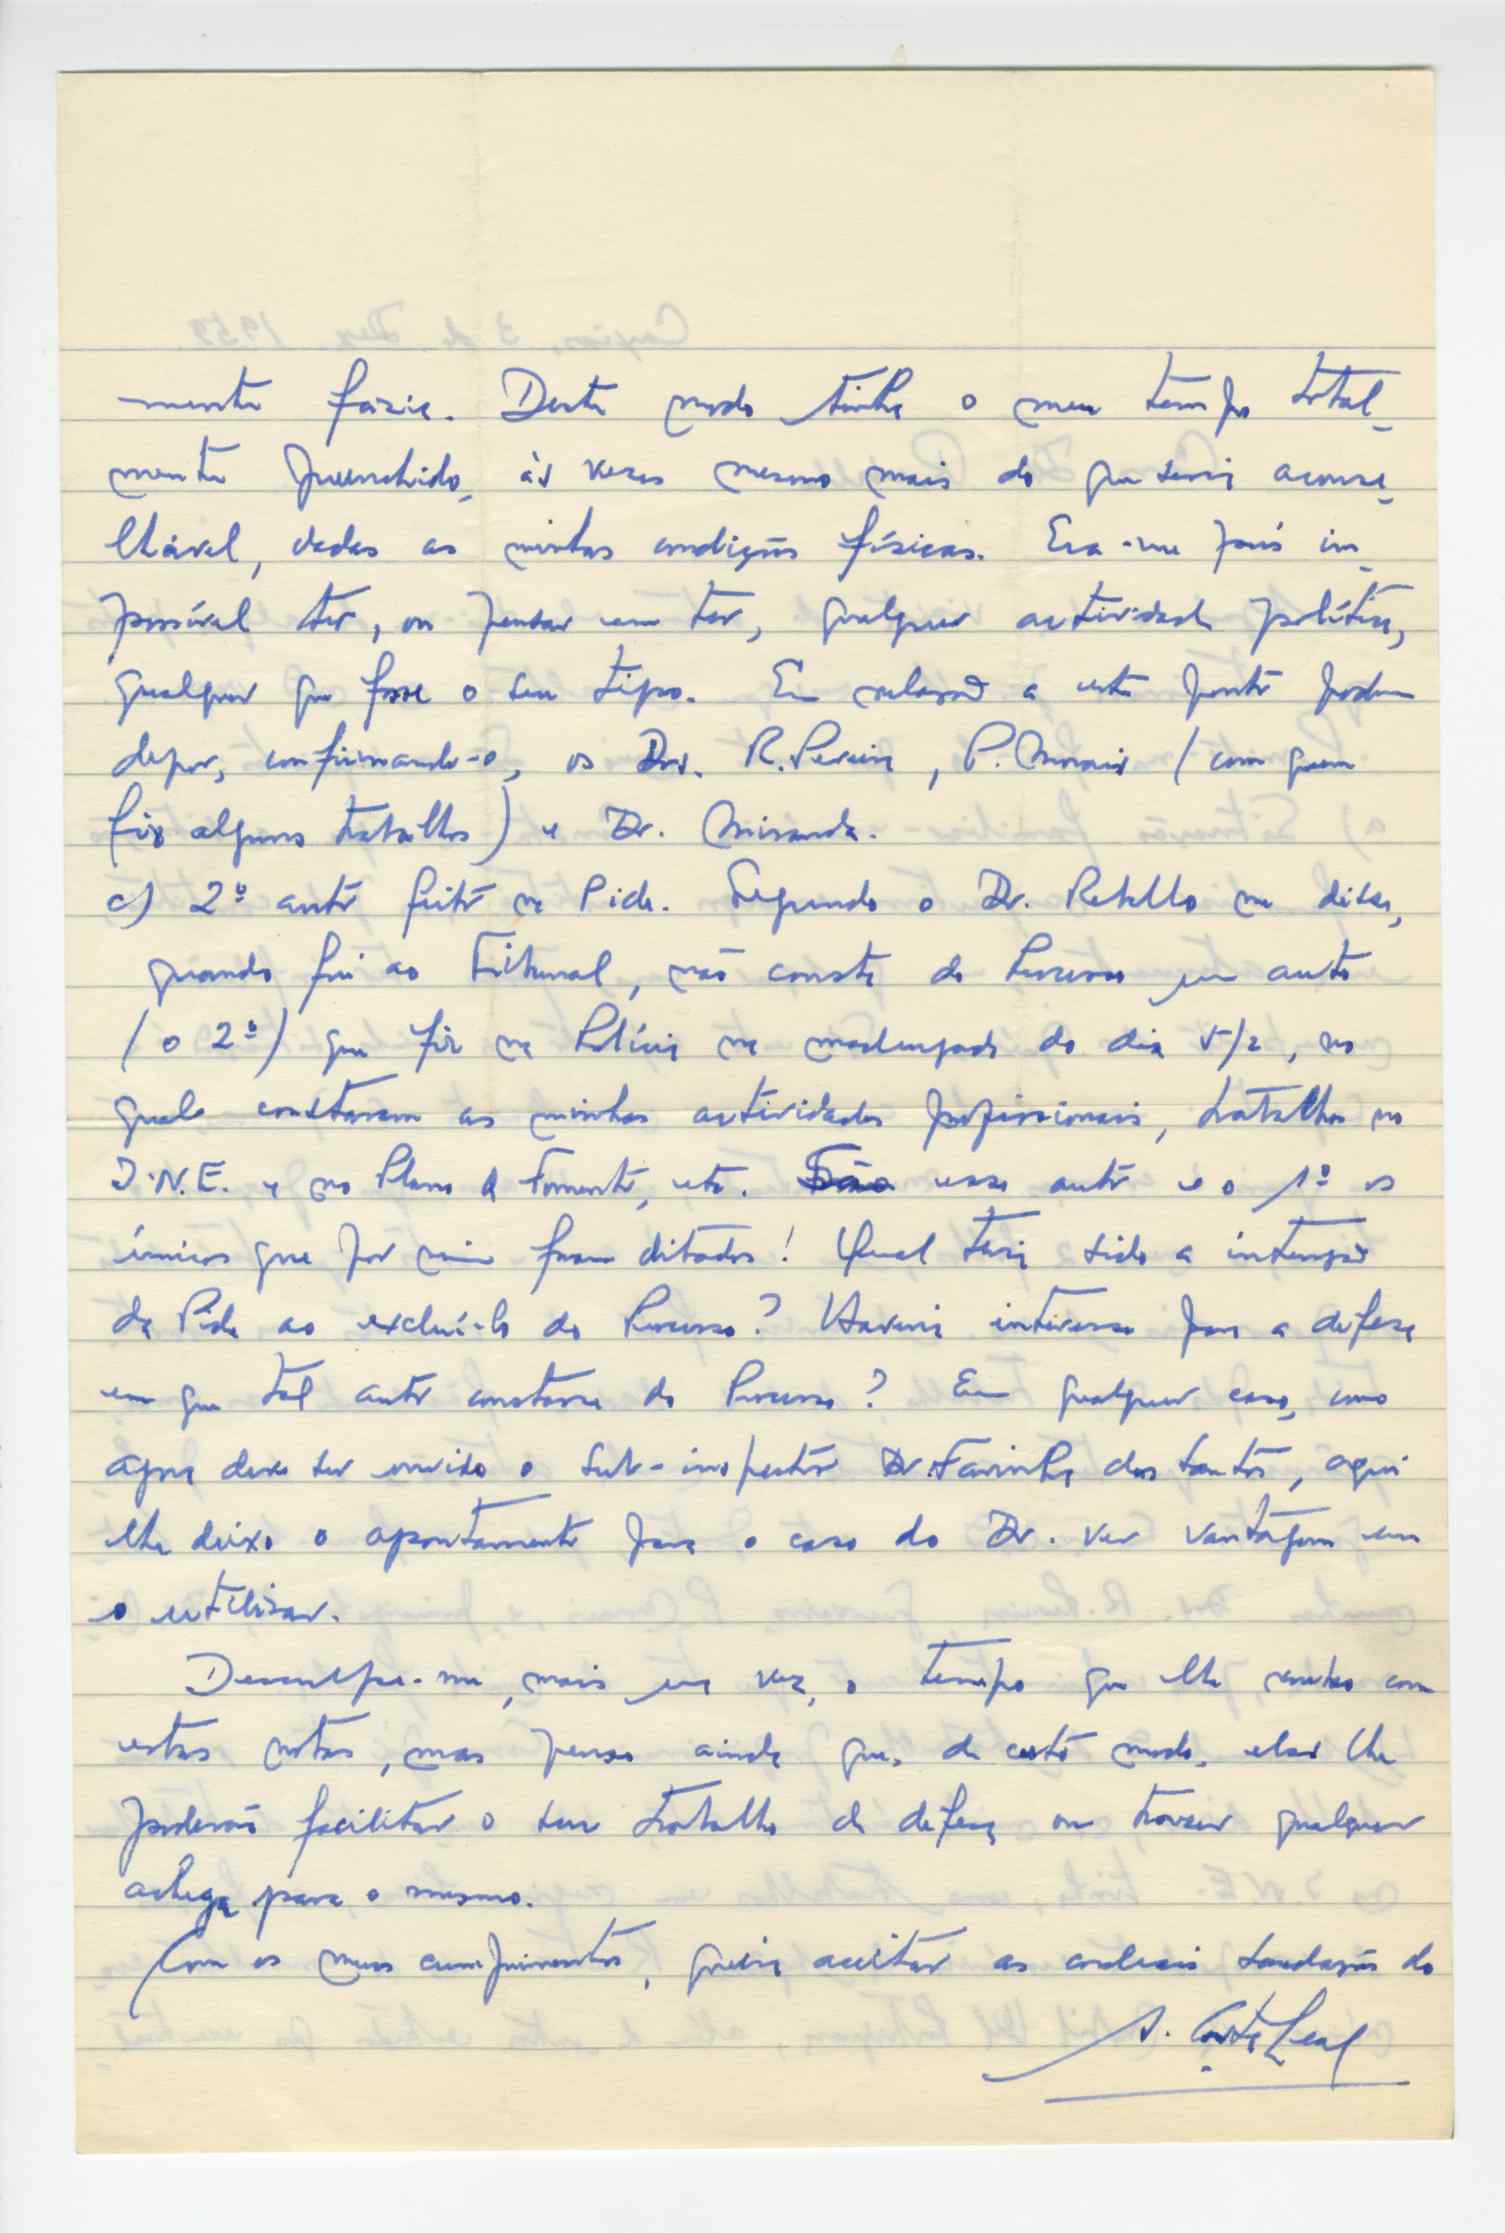 mente fazia. Deste modo tinha o meu tempo total-
mente preenchido, às vezes mesmo mais do que seria aconse-
lhável, dadas as minhas condições físicas. Era-me pois im-
possível ter, ou pensar em ter, qualquer actividade política,
qualquer que fosse o seu tipo. Em relação a este ponto podem
depor, confirmando-o, os Drs. R. Pereira, P. Morais (com quem
fiz alguns trabalhos) e Dr. Miranda.
c) 2º auto feito na Pide. Segundo o Dr. Rebello me disse,
quando fui ao Tribunal, não consta do Processo um auto
(o 2º) que fiz na Polícia na madrugada do dia 5/2, no
qual constavam as minhas actividades profissionais, trabalhos no
I.N.E. e no Plano de Fomento, etc. São esse auto e o 1º os
únicos que por mim foram ditados! Qual teria sido a intenção
da Pide ao excluí-lo do Processo? Haveria interesse para a defesa
em que tal auto constasse do Processo? Em qualquer caso, como
agora deve ser ouvido o sub-inspector Dr. Farinha dos Santos, aqui
lhe deixo o apontamento para o caso do Dr. ver vantagem em
o utilizar.
Desculpe-me, mais uma vez, o tempo que lhe roubo com
estas notas, mas penso ainda que, de certo modo, elas lhe
poderão facilitar o seu trabalho de defesa ou trazer qualquer
achega para o mesmo.
Com os meus cumprimentos, queira aceitar as cordeais saudações do
A. Corte Leal